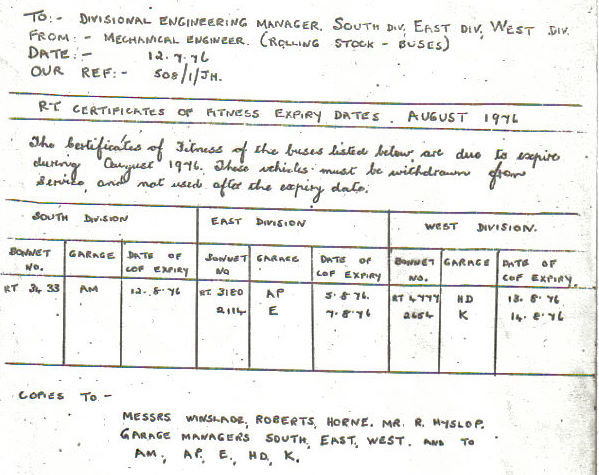 TO:- DIVISIONAL ENGINEERING MANAGER. SOUTH DIV, EAST DIV, WEST DIV.
FROM:- MECHANICAL ENGINEER. (ROLLING STOCK - BUSES)
DATE:- 12.7.76
OUR REF:- 508/1/JH.
RT CERTIFICATES OF FITNESS EXPIRY DATES. AUGUST 1976
The Certificates of Fitness of the buses listed below are due to expire
during August 1976. These vehicles must be withdrawn from
Service, and not used after the expiry date.
SOUTH DIVISION EAST DIVISION WEST DIVISION.
BONNET NO. GARAGE DATE OF COF EXPIRY BONNET NO GARAGE DATE OF COF EXPIRY BONNET NO. GARAGE DATE OF COF EXPIRY.
RT 3433 AM 12.8.76 RT 3180 AP 5.8.76. RT 4777 HD 13.8.76
2114 E 7.8.76 2654 K 14.8.76
COPIES TO -
MESSRS WINSLADE, ROBERTS, HORNE. MR. R. HYSLOP.
GARAGE MANAGERS SOUTH, EAST, WEST. AND TO
AM, AP, E, HD, K.